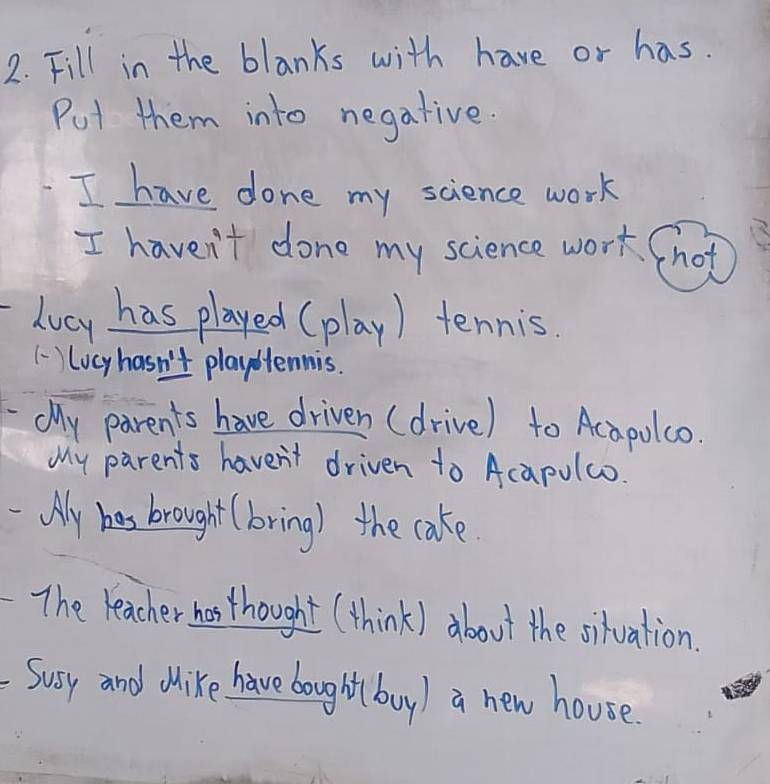 2. Fill in the blanks with have or has.
Put them into negative.
- I have done my science work
I haven't done my science work not
- Lucy has played (play) tennis.
(-) Lucy hasn't played tennis.
- My parents have driven (drive) to Acapulco.
My parents haven't driven to Acapulco.
- Aly has brought (bring) the cake.
- The teacher has thought (think) about the situation.
- Susy and Mike have bought (buy) a new house.